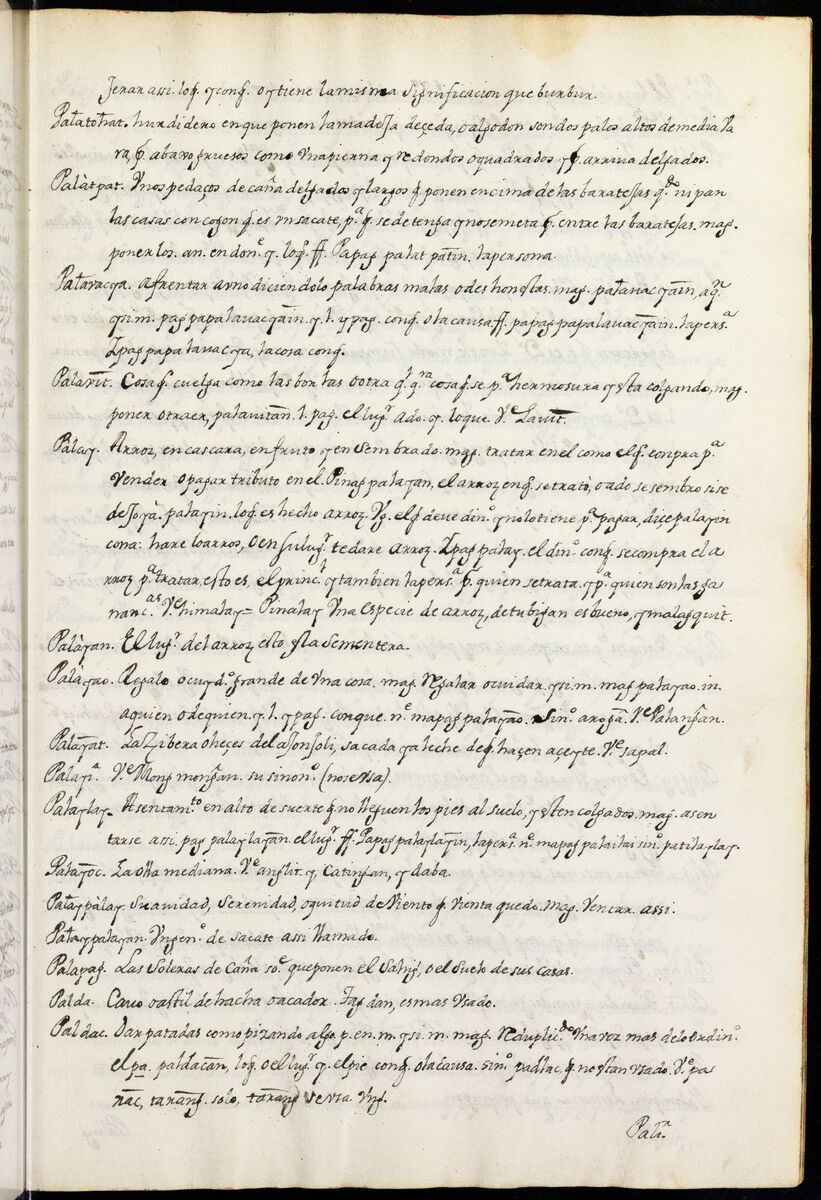 Jerar assi. loq̃. y conq̃. o y tiene la misma significacion que burbur.
Palatohat. hurdidero en que ponen la madeja de çeda, o algodon son dos palos altos de media va
ra, p̃. abaxo gruesos como vna pierna y redondos o quadrados y p̃. arriva delgados.
Palàtpat. Vnos pedaços de caña delgados y largos q̃ ponen encima de las baratejas q.do nipan
las casas con cogon q̃. es vn sacate, p.a q̃. se detenga y no se meta p̃. entre las baratejas. mag.
ponerlos. an. en don.e y. loq̃. ff. Papag palat patin. la persona.
Palavacya. afrentar a vno diciendolo palabras malas o des honestas. mag. palavacyain, aq.n
y si. m. pag papalavacyain. y l. ypag. conq̃. o la causa. ff. papag papalavacyain. la pers.a
Ipag papalavacya, la cosa conq̃.
Palavit. Cosa q̃. cuelga como las borlas o otra q.l q.ra cosa q̃. se p.a hermosura y esta colgando, mag.
poner o traer, palavitan. l. pag. el lug.r ado. y. lo que. V.e Lavit.
Palay. Arroz, en cascara, en fruto y en sembrado. mag. tratar en el como el q̃. conpra p.a
vender o pagar tributo en el. Pinag palayan, el arroz enq̃. se tratò, o ado se sembro si se
desojà. palayin. loq̃. es hecho arroz. Vg. el q̃. deve din.o y no lo tiene p.a pagar, diçe palayin
cona: hare lo arros, o en su lug.r te dare arroz. Ipag palay. el din.o conq̃. se compra el a
rroz p.a tratar, esto es, el princ.l y tambien la pers.a p̃. quien se trata, y p.a quien son las ga
nanc.as V.e himalay = Pinalay Vna especie de arroz, de tubigan es bueno, y malagquit.
Palàyan. El lug.r del arroz esto es la sementera.
Palàyao. Regalo o cuyd.o grande de vna cosa. mag. Regalar o cuidar. y si. m. mag palayao. in.
a quien o de quien. y. l. ypag. conque. n.o mapag palayao. Sin.o aroga. V.e Palangan.
Palayat. La Zibera o heçes del ajonjoli, sacada ya leche de q̃ haçen açeyte. V.e sapal.
V.e Mong mongan. su sinon.o (no se vsa).
Palaylay = Asentam.to en alto de suerte q̃ no lleguen los pies al suelo, y esten colgados. mag. asen
tarse assi. pag palaylayan. el lug.r ff. Papag palaylayin, la pers.a n.o mapag palailai sin.o patilaylay.
Palayoc. La olla mediana. V.e anglit. y Catingan, y daba.
Palaypalay. Suavidad, serenidad, o quitud de viento q̃ vienta quedo. mag. Ventar. assi.
Palaypalayan. Vn gen.o de sacate assi llamado.
Palapag. Las Soleras de Caña so.e que ponen el Sahig, o el Suelo de sus casas.
Palda. Cavo o astil de hacha o acador. Tagdan, es mas vsado.
Paldac. Dar patadas como pizando algo. p. en. m. y si. m. mag. Reduplic.do Vna voz mas de lo ordin.o
el pa. paldacan, loq̃. o el lug.r y. el pie conq̃. o la causa. sin.o padlac, q̃ no es tan vsado. V.e pa
nac, tarang. solo, tarang se vsa. Vng.
Pali.n